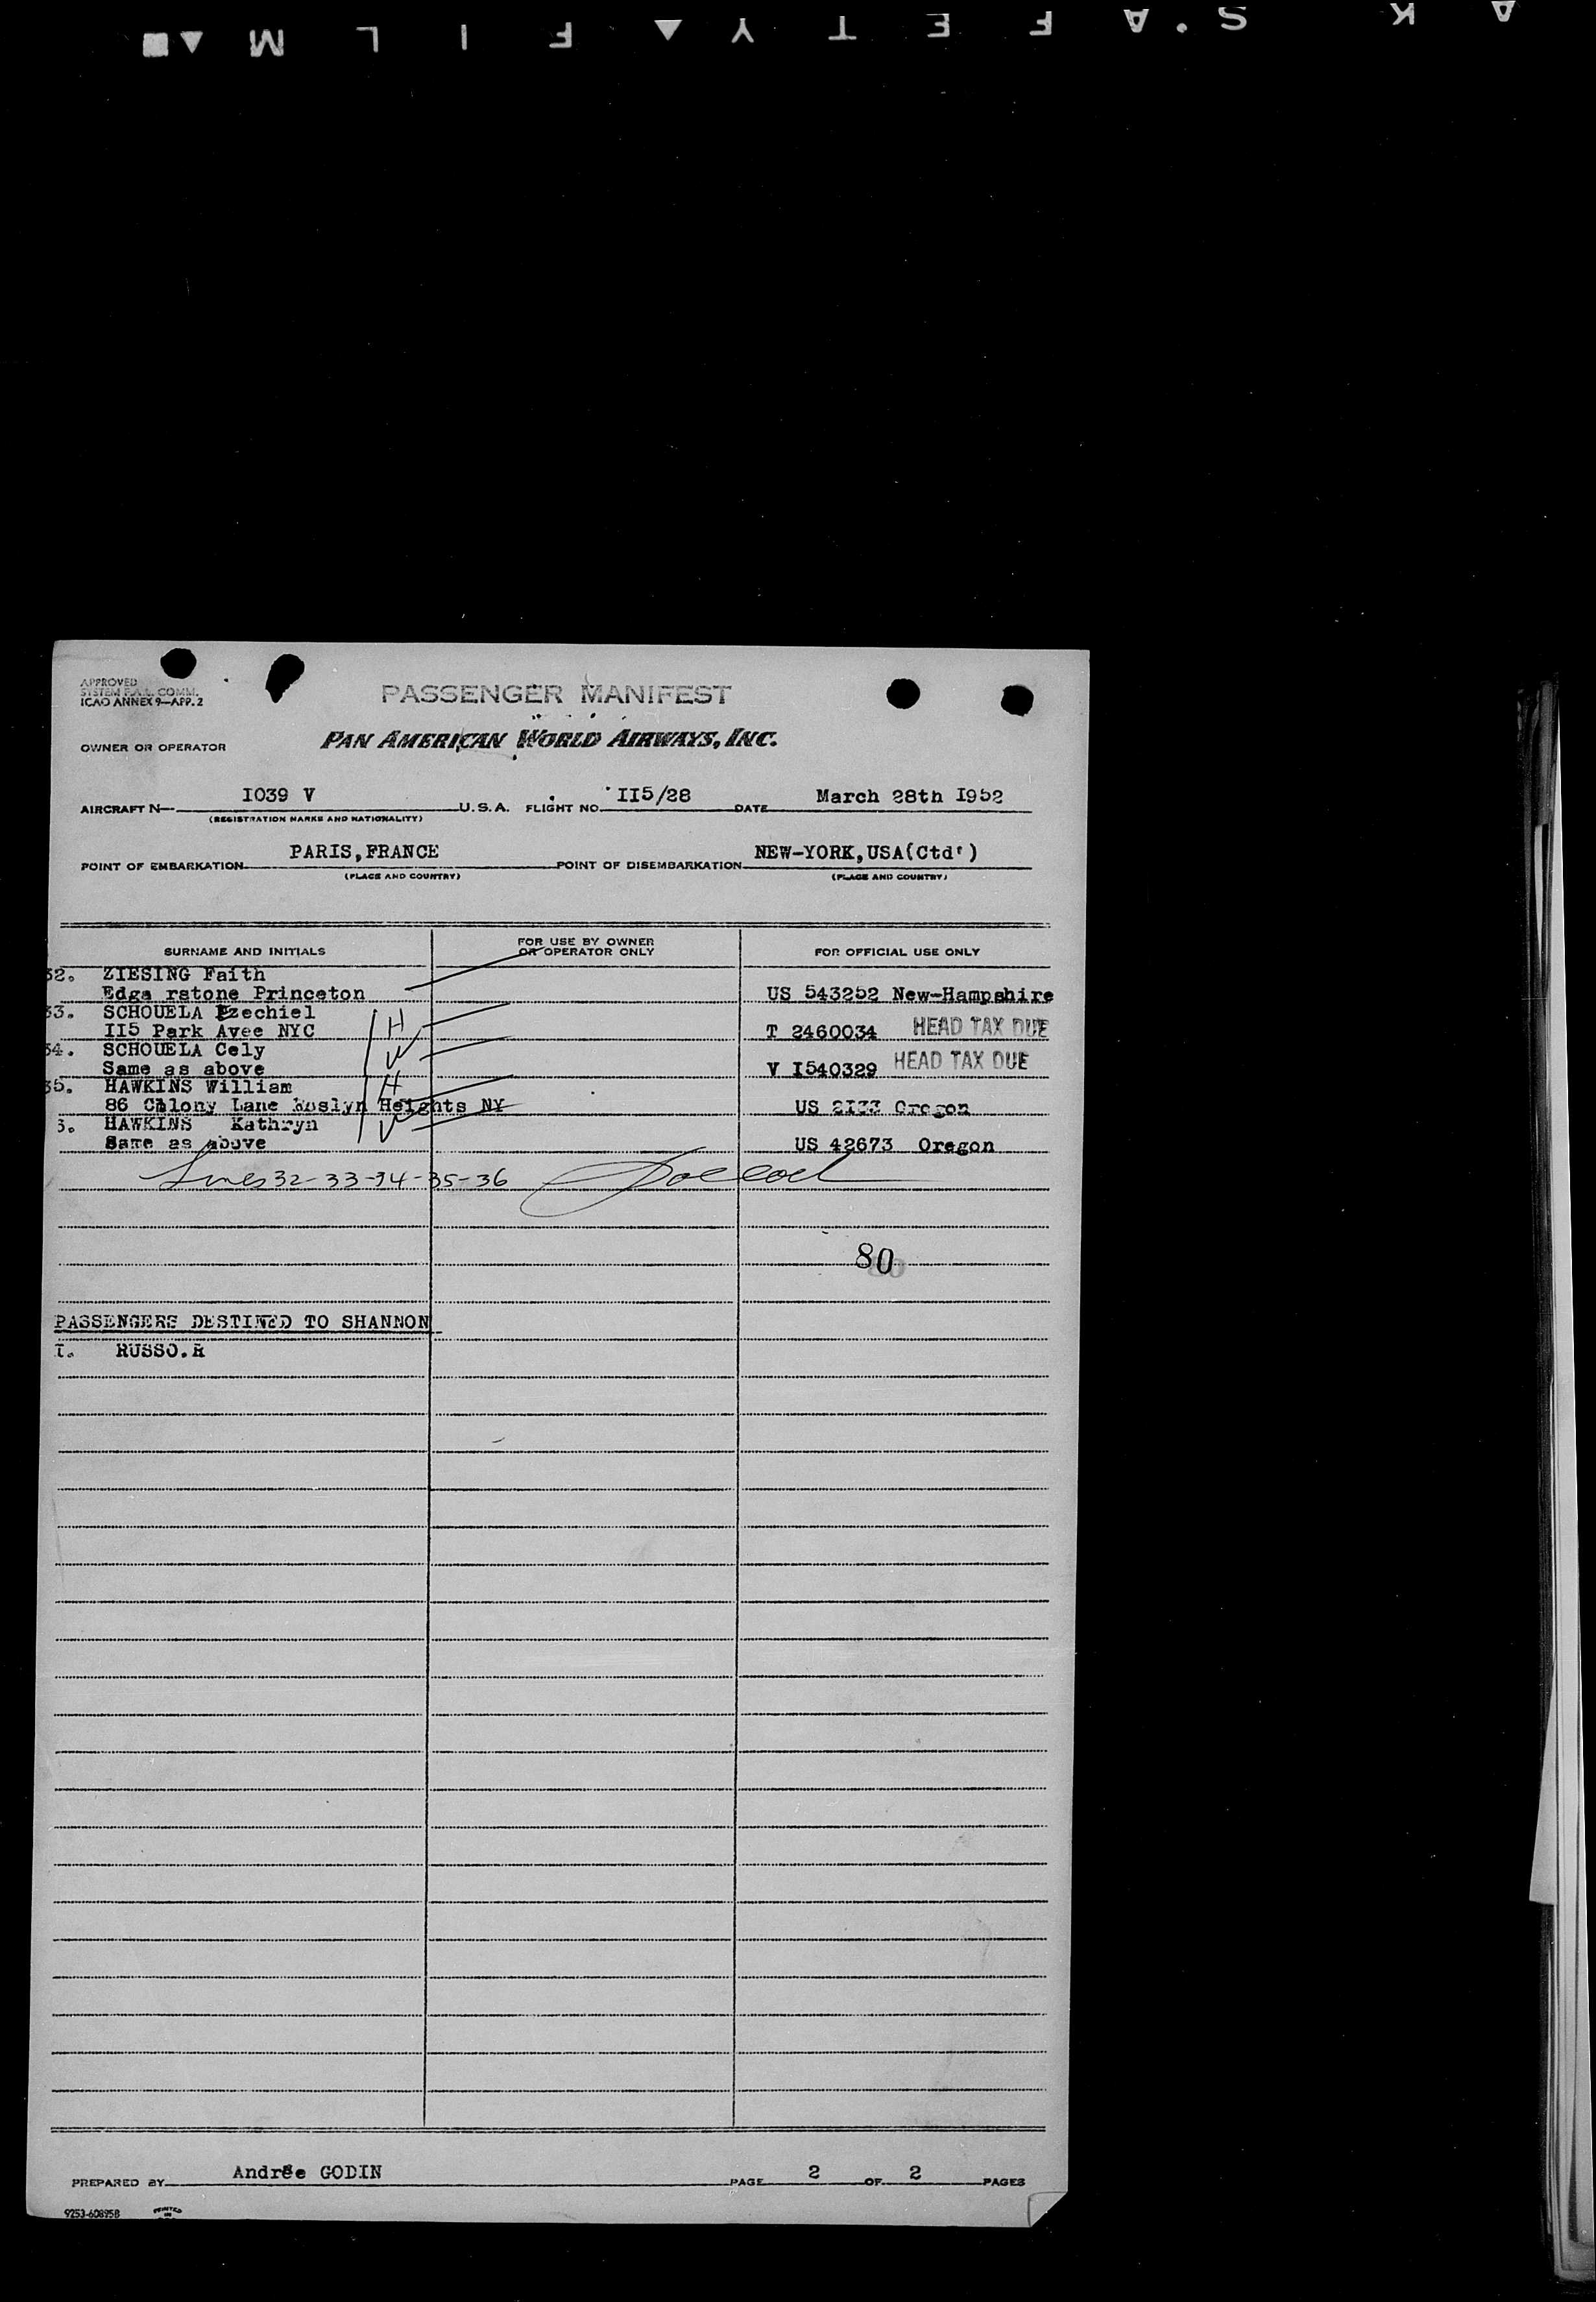 SAFETY FILM
APPROVED
SYSTEM F.A.L. COMM.
ICAO ANNEX 9—APP. 2
PASSENGER MANIFEST
OWNER OR OPERATOR PAN AMERICAN WORLD AIRWAYS, INC.
AIRCRAFT N— I039 V U.S.A. FLIGHT NO. II5/28 DATE March 28th I952
(REGISTRATION MARKS AND NATIONALITY)
POINT OF EMBARKATION PARIS,FRANCE POINT OF DISEMBARKATION NEW-YORK,USA(Ctd')
(PLACE AND COUNTRY) (PLACE AND COUNTRY)
SURNAME AND INITIALS FOR USE BY OWNER OR OPERATOR ONLY FOR OFFICIAL USE ONLY
32. ZIESING Faith
Edge rstone Princeton US 543252 New-Hampshire
33. SCHOUELA Ezechiel
II5 Park Avee NYC H T 2460034 HEAD TAX DUE
34. SCHOUELA Cely
Same as above W V I540329 HEAD TAX DUE
35. HAWKINS William H
86 Colony Lane Roslyn Heights NY US 2I33 Oregon
6. HAWKINS Kathryn
Same as above W US 42673 Oregon
Lines 32-33-34-35-36
80
PASSENGERS DESTINED TO SHANNON
I. RUSSO.R
PREPARED BY Andrée GODIN PAGE 2 OF 2 PAGES
9253-60895B PRINTED